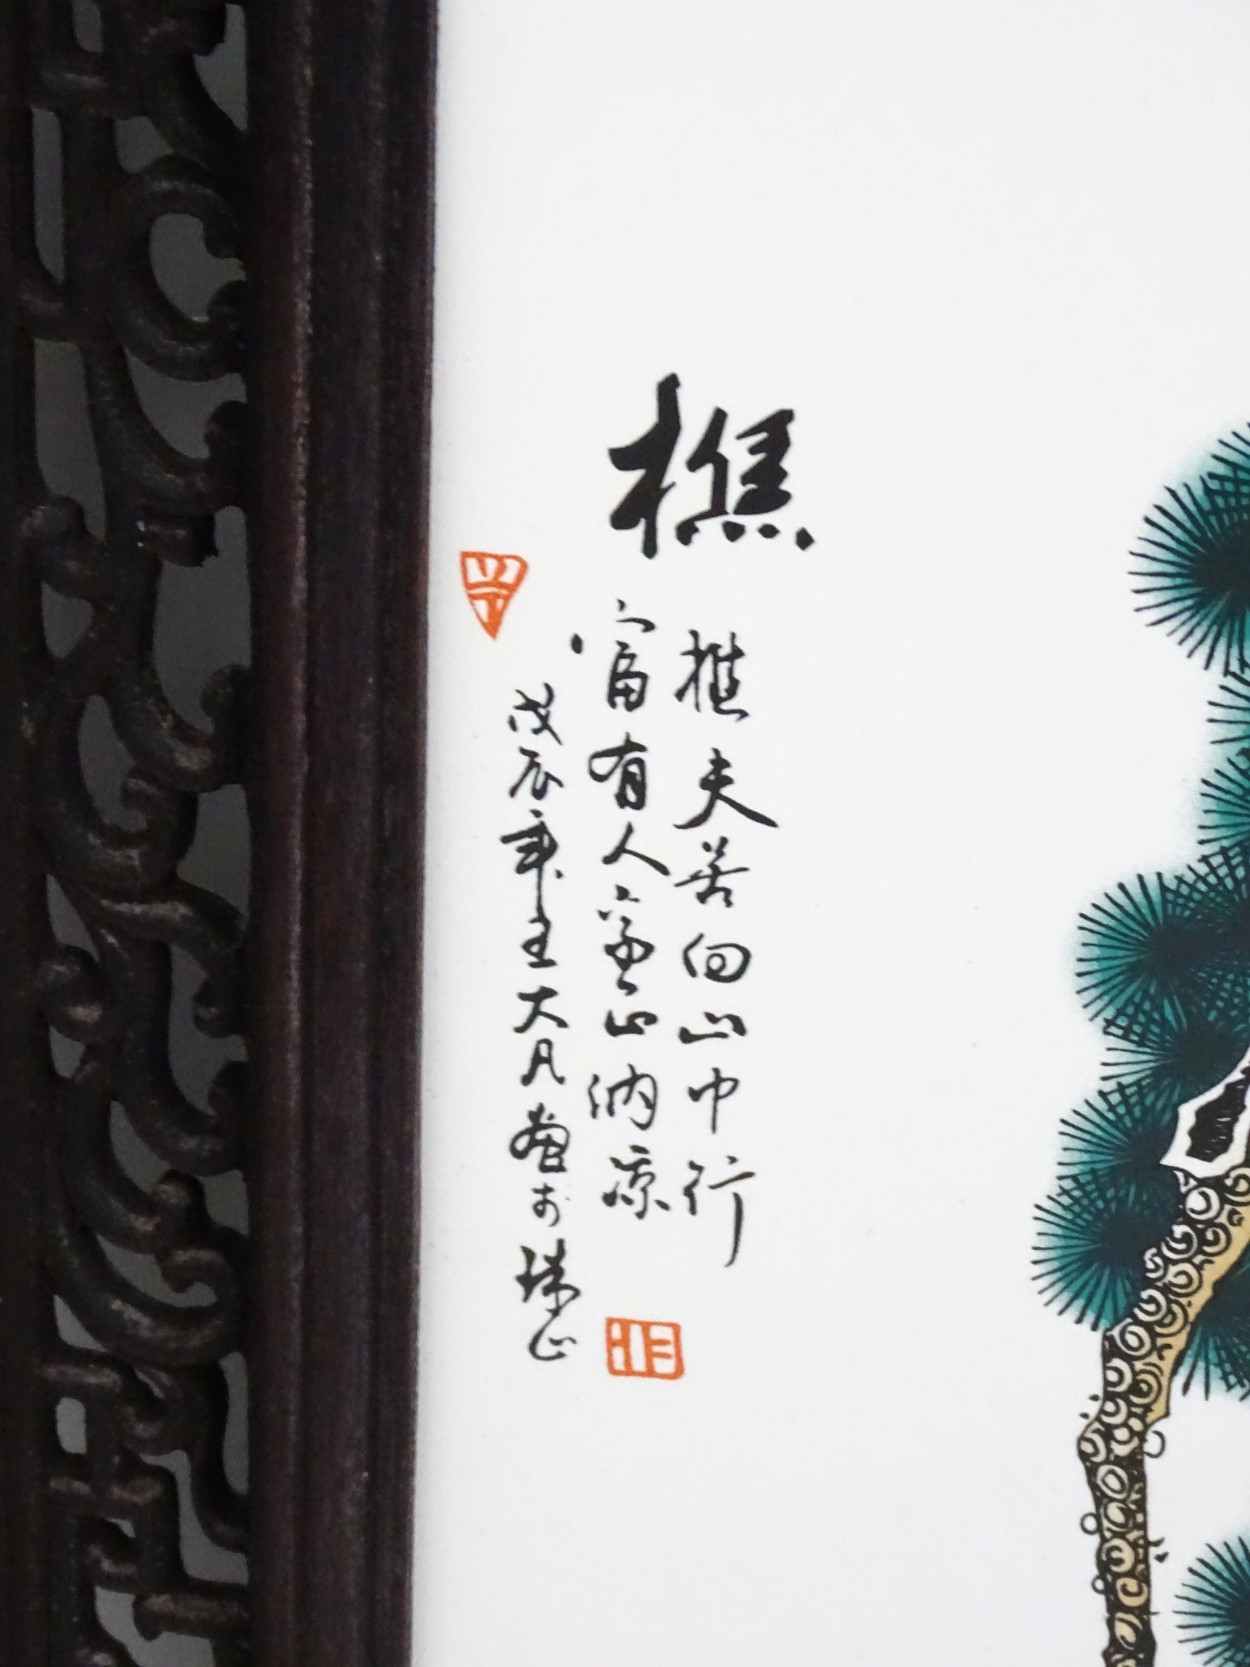 樵
樵夫苦向山中行
富有人家山納凉
戊辰年王大凡畫於珠山